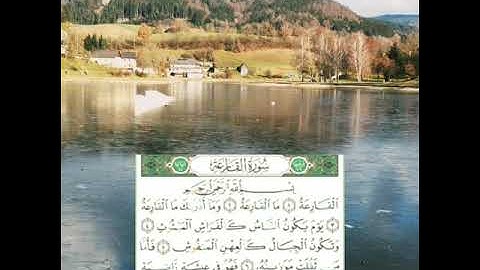 سُورَةُ القَارِعَةِ
بِسْمِ اللَّهِ الرَّحْمَٰنِ الرَّحِيمِ
الْقَارِعَةُ ١ مَا الْقَارِعَةُ ٢ وَمَا أَدْرَاكَ مَا الْقَارِعَةُ
٣ يَوْمَ يَكُونُ النَّاسُ كَالْفَرَاشِ الْمَبْثُوثِ ٤
وَتَكُونُ الْجِبَالُ كَالْعِهْنِ الْمَنْفُوشِ ٥ فَأَمَّا
مَنْ ثَقُلَتْ مَوَازِينُهُ ٦ فَهُوَ فِي عِيشَةٍ رَاضِيَةٍ